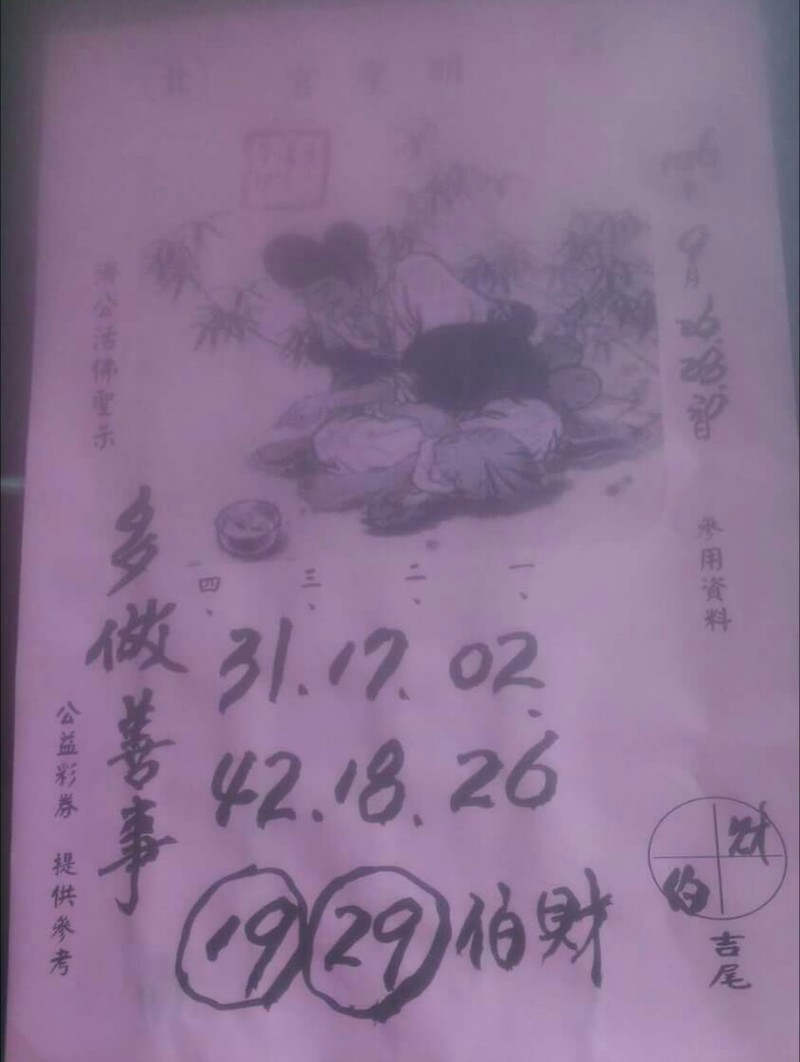 9月
26.28.
參用資料
一、
二、
三、
四、
濟公活佛聖示
02.17.31
26.18.42
19 29 伯財
多做善事
公益彩券 提供參考
財
伯
吉尾